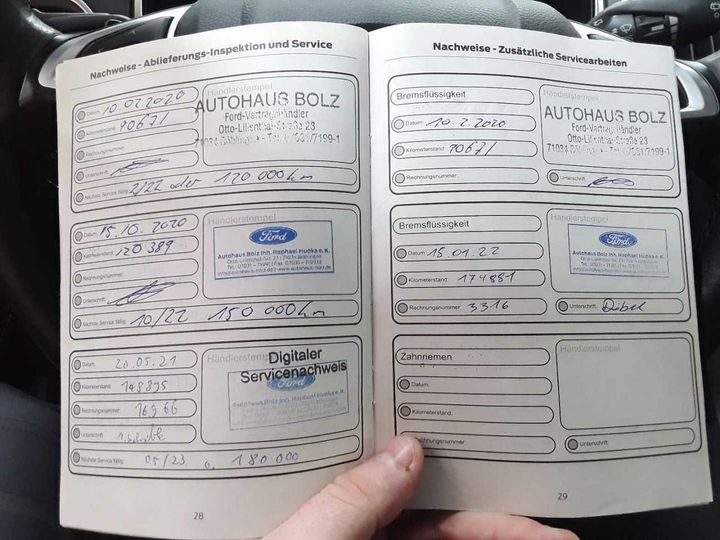 Nachweise - Ablieferungs-Inspektion und Service
Händlerstempel
AUTOHAUS BOLZ
Ford-Vertragshändler
Otto-Lilienthal-Straße 23
71034 Böblingen
Datum: 10.02.2020
Kilometerstand: 90671
Rechnungsnummer:
Unterschrift:
Nächste Service fällig: 2/22 oder 120 000 km
Händlerstempel
Ford
Autohaus Bolz Inh. Raphael Hupka e.K.
Datum: 15.10.2020
Kilometerstand: 120 389
Rechnungsnummer:
Unterschrift:
Nächste Service fällig: 10/22 150 000 km
Händlerstempel
Digitaler
Servicenachweis
Ford
Autohaus Bolz Inh. Raphael Hupka e.K.
Datum: 20.05.21
Kilometerstand: 148895
Rechnungsnummer: 16966
Unterschrift:
Nächste Service fällig: 05/23 o. 180 000
28
Nachweise - Zusätzliche Servicearbeiten
Bremsflüssigkeit
Händlerstempel
AUTOHAUS BOLZ
Ford-Vertragshändler
Otto-Lilienthal-Straße 23
71034 Böblingen
Datum: 10.2.2020
Kilometerstand: 90671
Rechnungsnummer:
Unterschrift:
Bremsflüssigkeit
Händlerstempel
Ford
Autohaus Bolz Inh. Raphael Hupka e.K.
Datum: 18.01.22
Kilometerstand: 174881
Rechnungsnummer: 3316
Unterschrift:
Zahnriemen
Händlerstempel
Datum:
Kilometerstand:
Unterschrift:
29